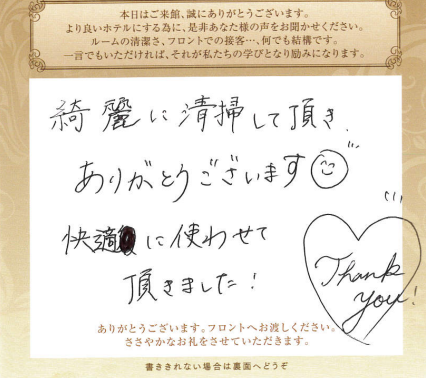 本日はご来館、誠にありがとうございます。
より良いホテルにする為に、是非あなた様の声をお聞かせください。
ルームの清潔さ、フロントでの接客…、何でも結構です。
一言でもいただければ、それが私たちの学びとなり励みになります。
綺麗に清掃して頂き、
ありがとうございます
快適に使わせて
頂きました!
Thank
you!
ありがとうございます。フロントへお渡しください。
ささやかなお礼をさせていただきます。
書ききれない場合は裏面へどうぞ